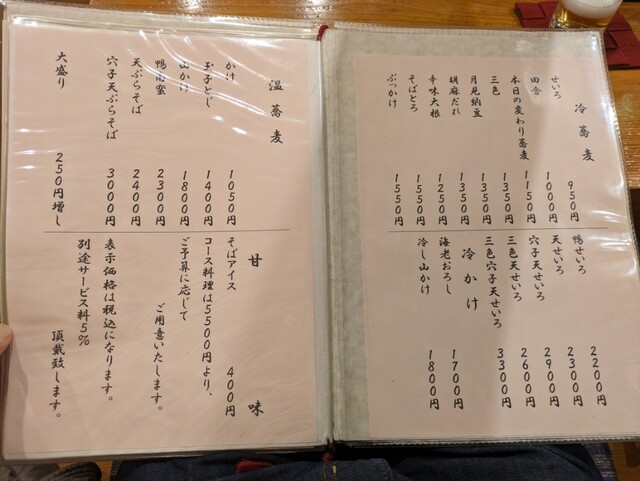 冷蕎麦
せいろ 950円
田舎 1000円
本日の変わり蕎麦 1150円
三色 1350円
月見納豆 1350円
胡麻だれ 1350円
辛味大根 1250円
そばとろ 1550円
ぶっかけ 1550円
鴨せいろ 2200円
天せいろ 2300円
穴子天せいろ 2900円
三色天せいろ 2600円
三色穴子天せいろ 3300円
冷かけ
海老おろし 1700円
冷し山かけ 1800円
温蕎麦
かけ 1050円
玉子とじ 1400円
山かけ 1800円
鴨南蛮 2300円
天ぷらそば 2400円
穴子天ぷらそば 3000円
大盛り 250円増し
甘味
そばアイス 400円
コース料理は5500円より、
ご予算に応じて
ご用意いたします。
表示価格は税込になります。
別途サービス料5%
頂戴致します。